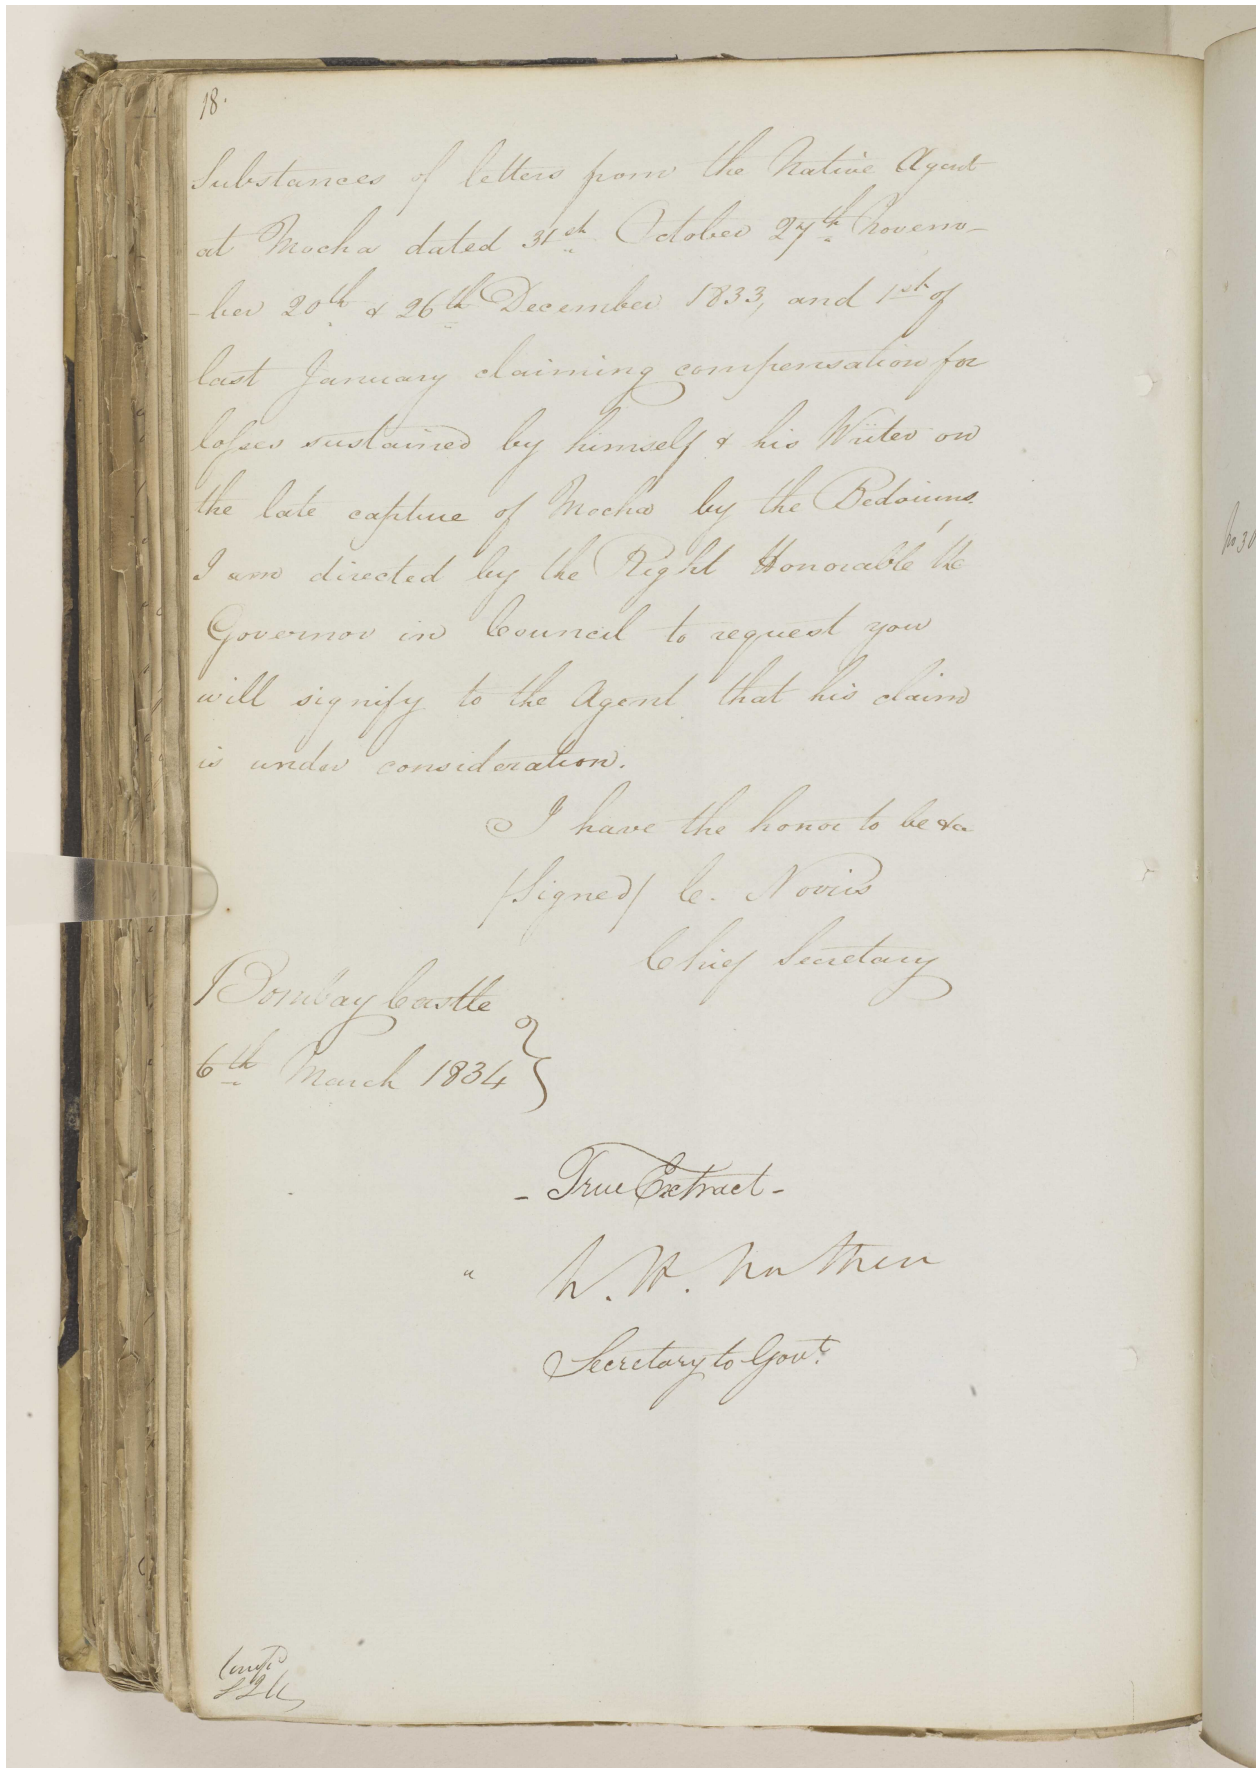 18.
Substances of letters from the Native Agent
at Mocha dated 31st October 27th Novem-
-ber 20th & 26th December 1833, and 1st of
last January claiming compensation for
losses sustained by himself & his Writer on
the late capture of Mocha by the Bedouins,
I am directed by the Right Honorable the
Governor in Council to request you
will signify to the Agent that his claim
is under consideration.
I have the honor to be &a
/Signed/ C. Norris
Chief Secretary
Bombay Castle
6th March 1834
- True Extract -
W. H. Wathen
Secretary to Govt.
No 30